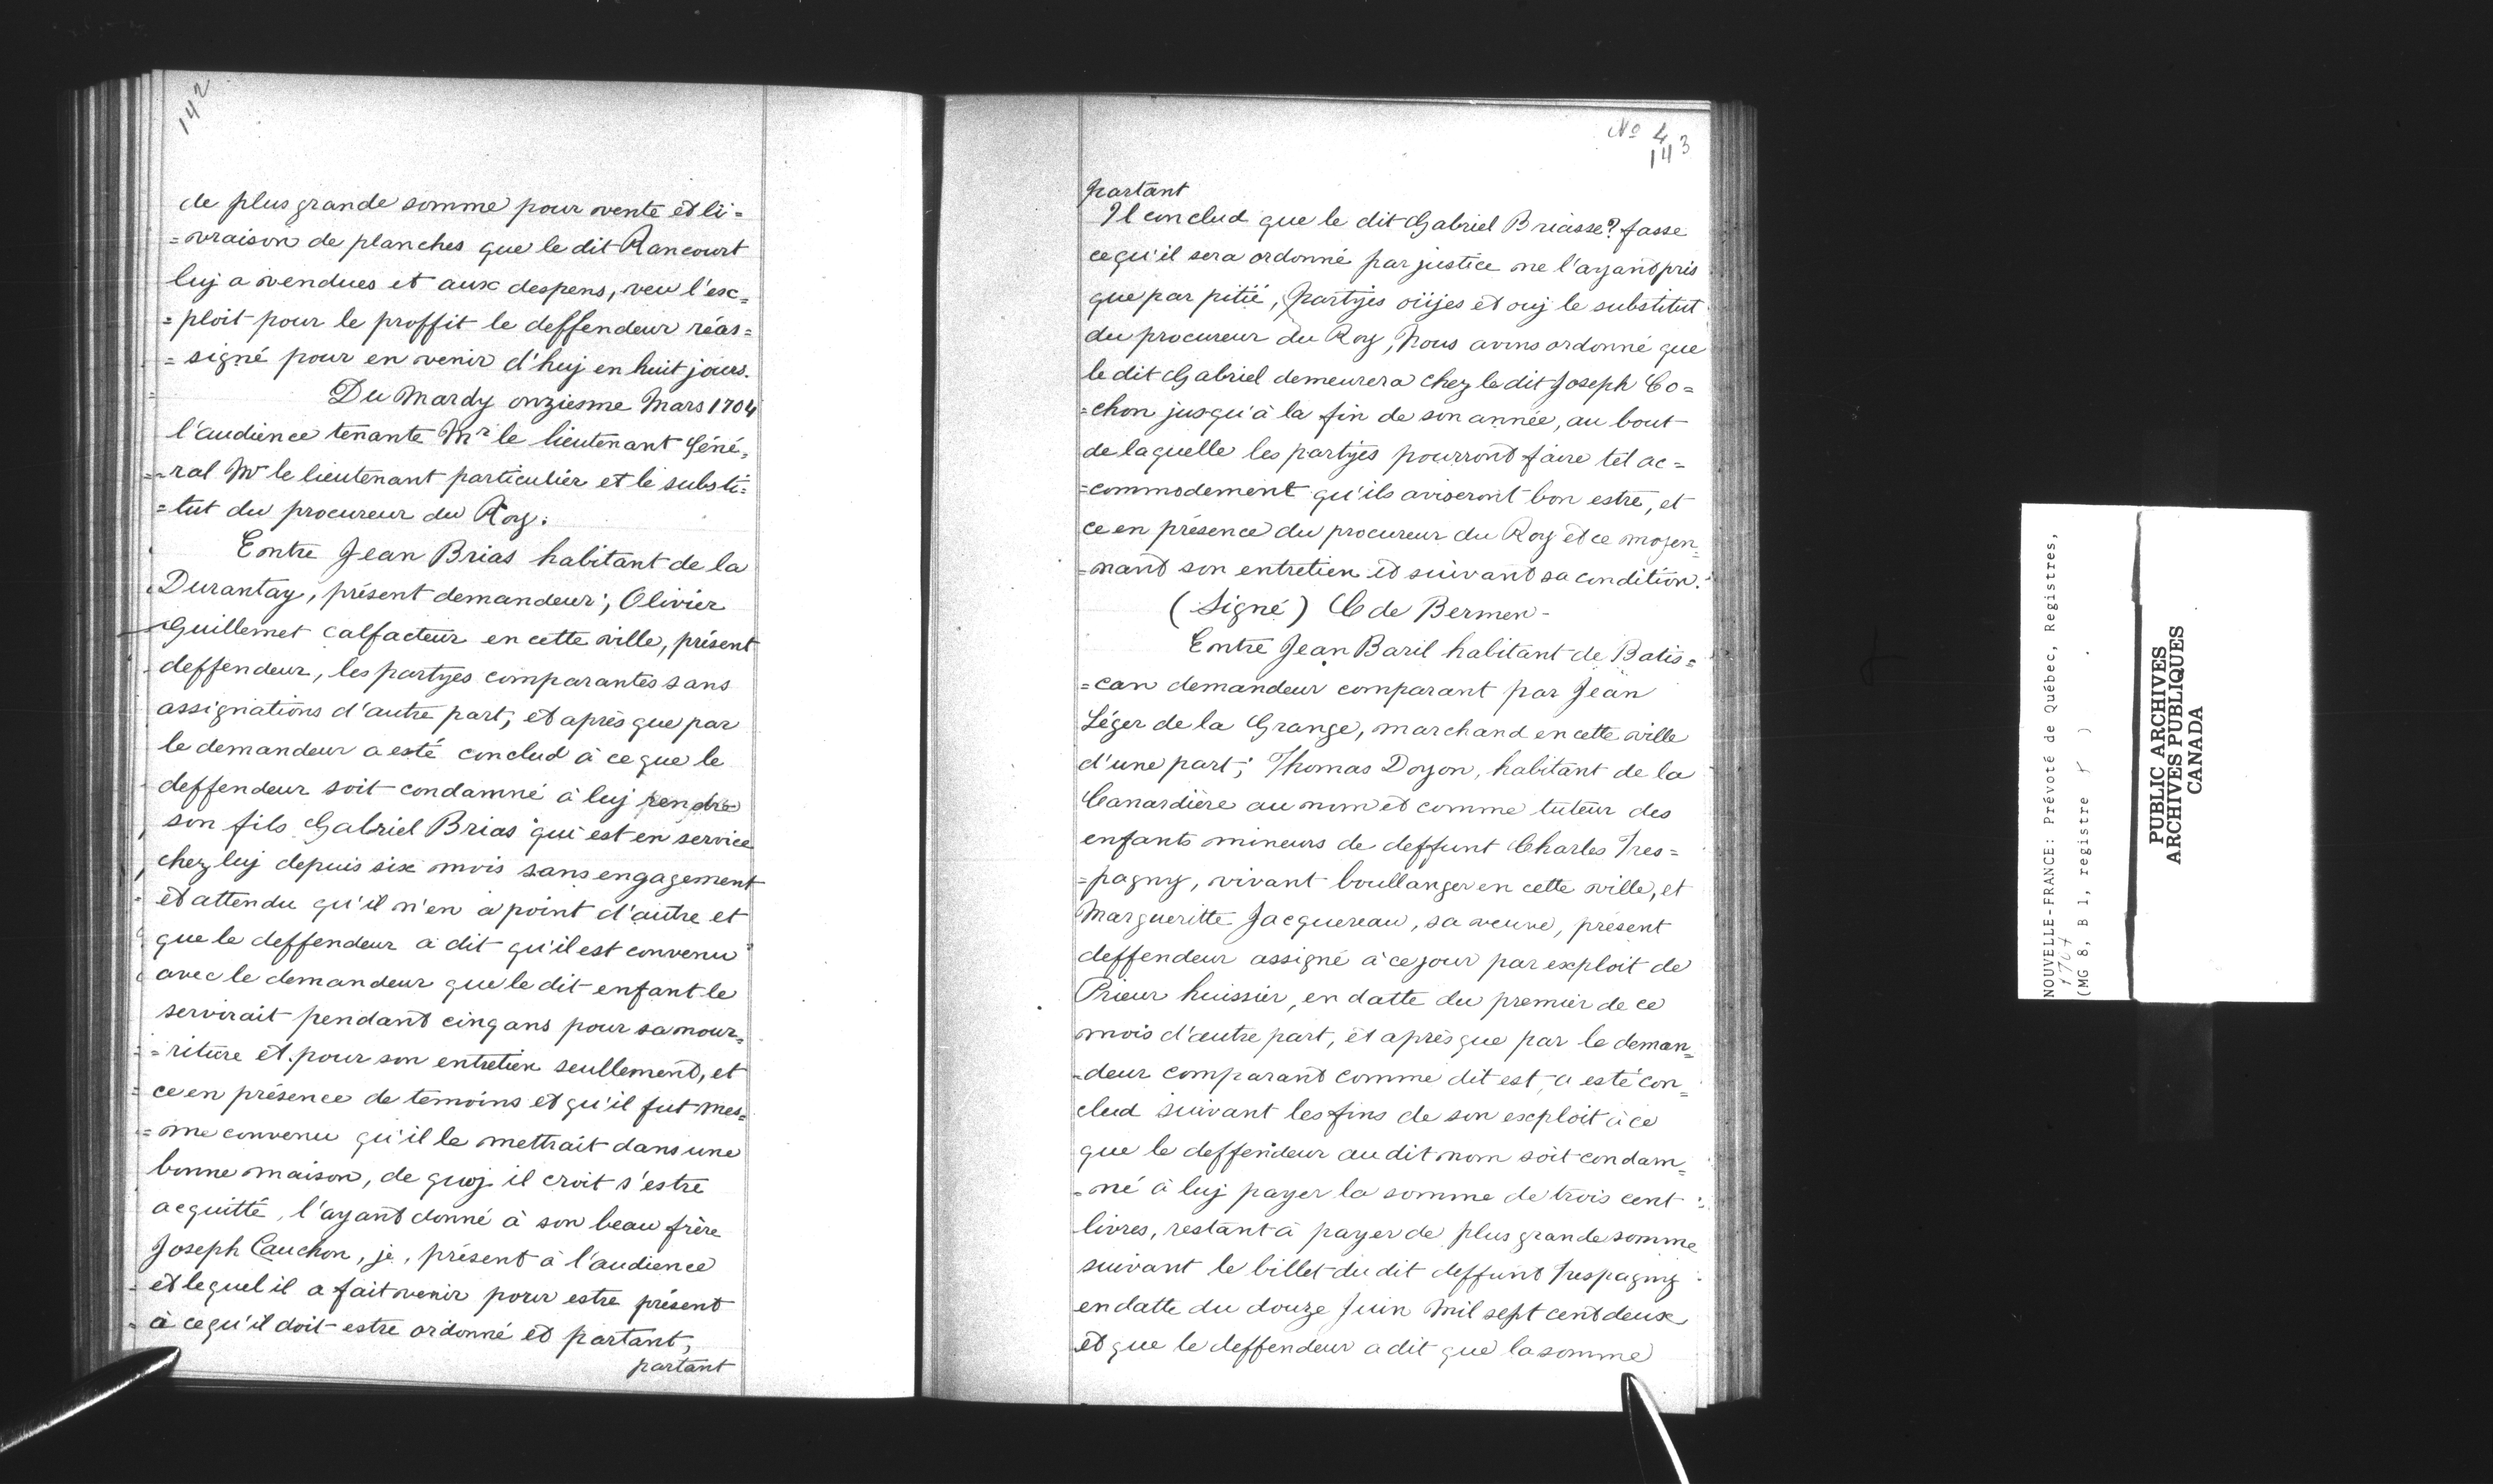 142
de plus grande somme pour vente et li=
=vraison de planches que le dit Rancourt
luj a vendues et aux despens, veu l'ex=
=ploit pour le proffit le deffendeur réas=
=signé pour en venir d'huj en huit jours.
Du Mardy onziesme Mars 1704
l'audience tenante Mr le lieutenant Géné=
=ral Mr le lieutenant particulier et le substi=
=tut du procureur du Roy.
Entre Jean Brias habitant de la
Durantay, présent demandeur; Olivier
Guillemet calfacteur en cette ville, présent
deffendeur, les partyes comparantes sans
assignations d'autre part; et après que par
le demandeur a esté conclud à ce que le
deffendeur soit condamné à luj rendre
son fils Gabriel Brias qui est en service
chez luj depuis six mois sans engagement
et attendu qu'il n'en a point d'autre et
que le deffendeur a dit qu'il est convenu
avec le demandeur que le dit enfant le
servirait pendant cinq ans pour sa nour=
=riture et pour son entretien seullement, et
ce en présence de temoins et qu'il fut mes=
=me convenu qu'il le mettrait dans une
bonne maison, de quoj il croit s'estre
acquitté, l'ayant donné à son beau frère
Joseph Cauchon, je, présent à l'audience
et lequel il a fait venir pour estre présent
à ce qu'il doit estre ordonné et partant,
partant
No 4
143
partant
Il conclud que le dit Gabriel Briasse? fasse
ce qu'il sera ordonné par justice ne l'ayant pris
que par pitié, partyes oüjes et ouj le substitut
du procureur du Roy, Nous avons ordonné que
le dit Gabriel demeurera chez le dit Joseph Co=
=chon jusqu'à la fin de son année, au bout
de laquelle les partyes pourront faire tel ac=
=commodement qu'ils aviseront bon estre, et
ce en présence du procureur du Roy et ce moyen=
=nant son entretien et suivant sa condition.
(Signé) C de Bermen-
Entre Jean Baril habitant de Batis=
=can demandeur comparant par Jean
Léger de la Grange, marchand en cette ville
d'une part; Thomas Doyon, habitant de la
Canardière au nom et comme tuteur des
enfants mineurs de deffunt Charles Tres=
=pagny, vivant boullanger en cette ville, et
Margueritte Jacquereau, sa veuve, présent
deffendeur assigné à ce jour par exploit de
Prieur huissier, en datte du premier de ce
mois d'autre part, et après que par le deman=
=deur comparant comme dit est a esté con=
clud suivant les fins de son exploit à ce
que le deffendeur au dit nom soit condam=
=né à luj payer la somme de trois cent
livres, restant à payer de plus grande somme
suivant le billet du dit deffunt Trespagny
en datte du douze Juin Mil sept cent deux
et que le deffendeur a dit que la somme
NOUVELLE-FRANCE: Prévoté de Québec, Registres,
1704
(MG 8, B 1, registre )
PUBLIC ARCHIVES
ARCHIVES PUBLIQUES
CANADA